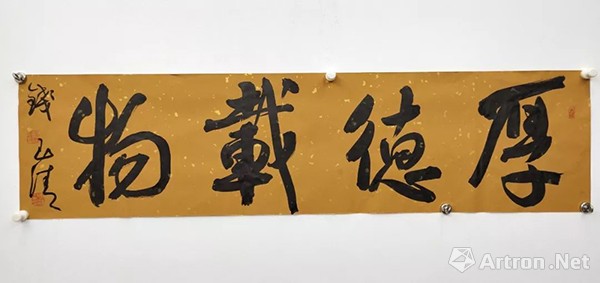 厚德載物
Artron.Net